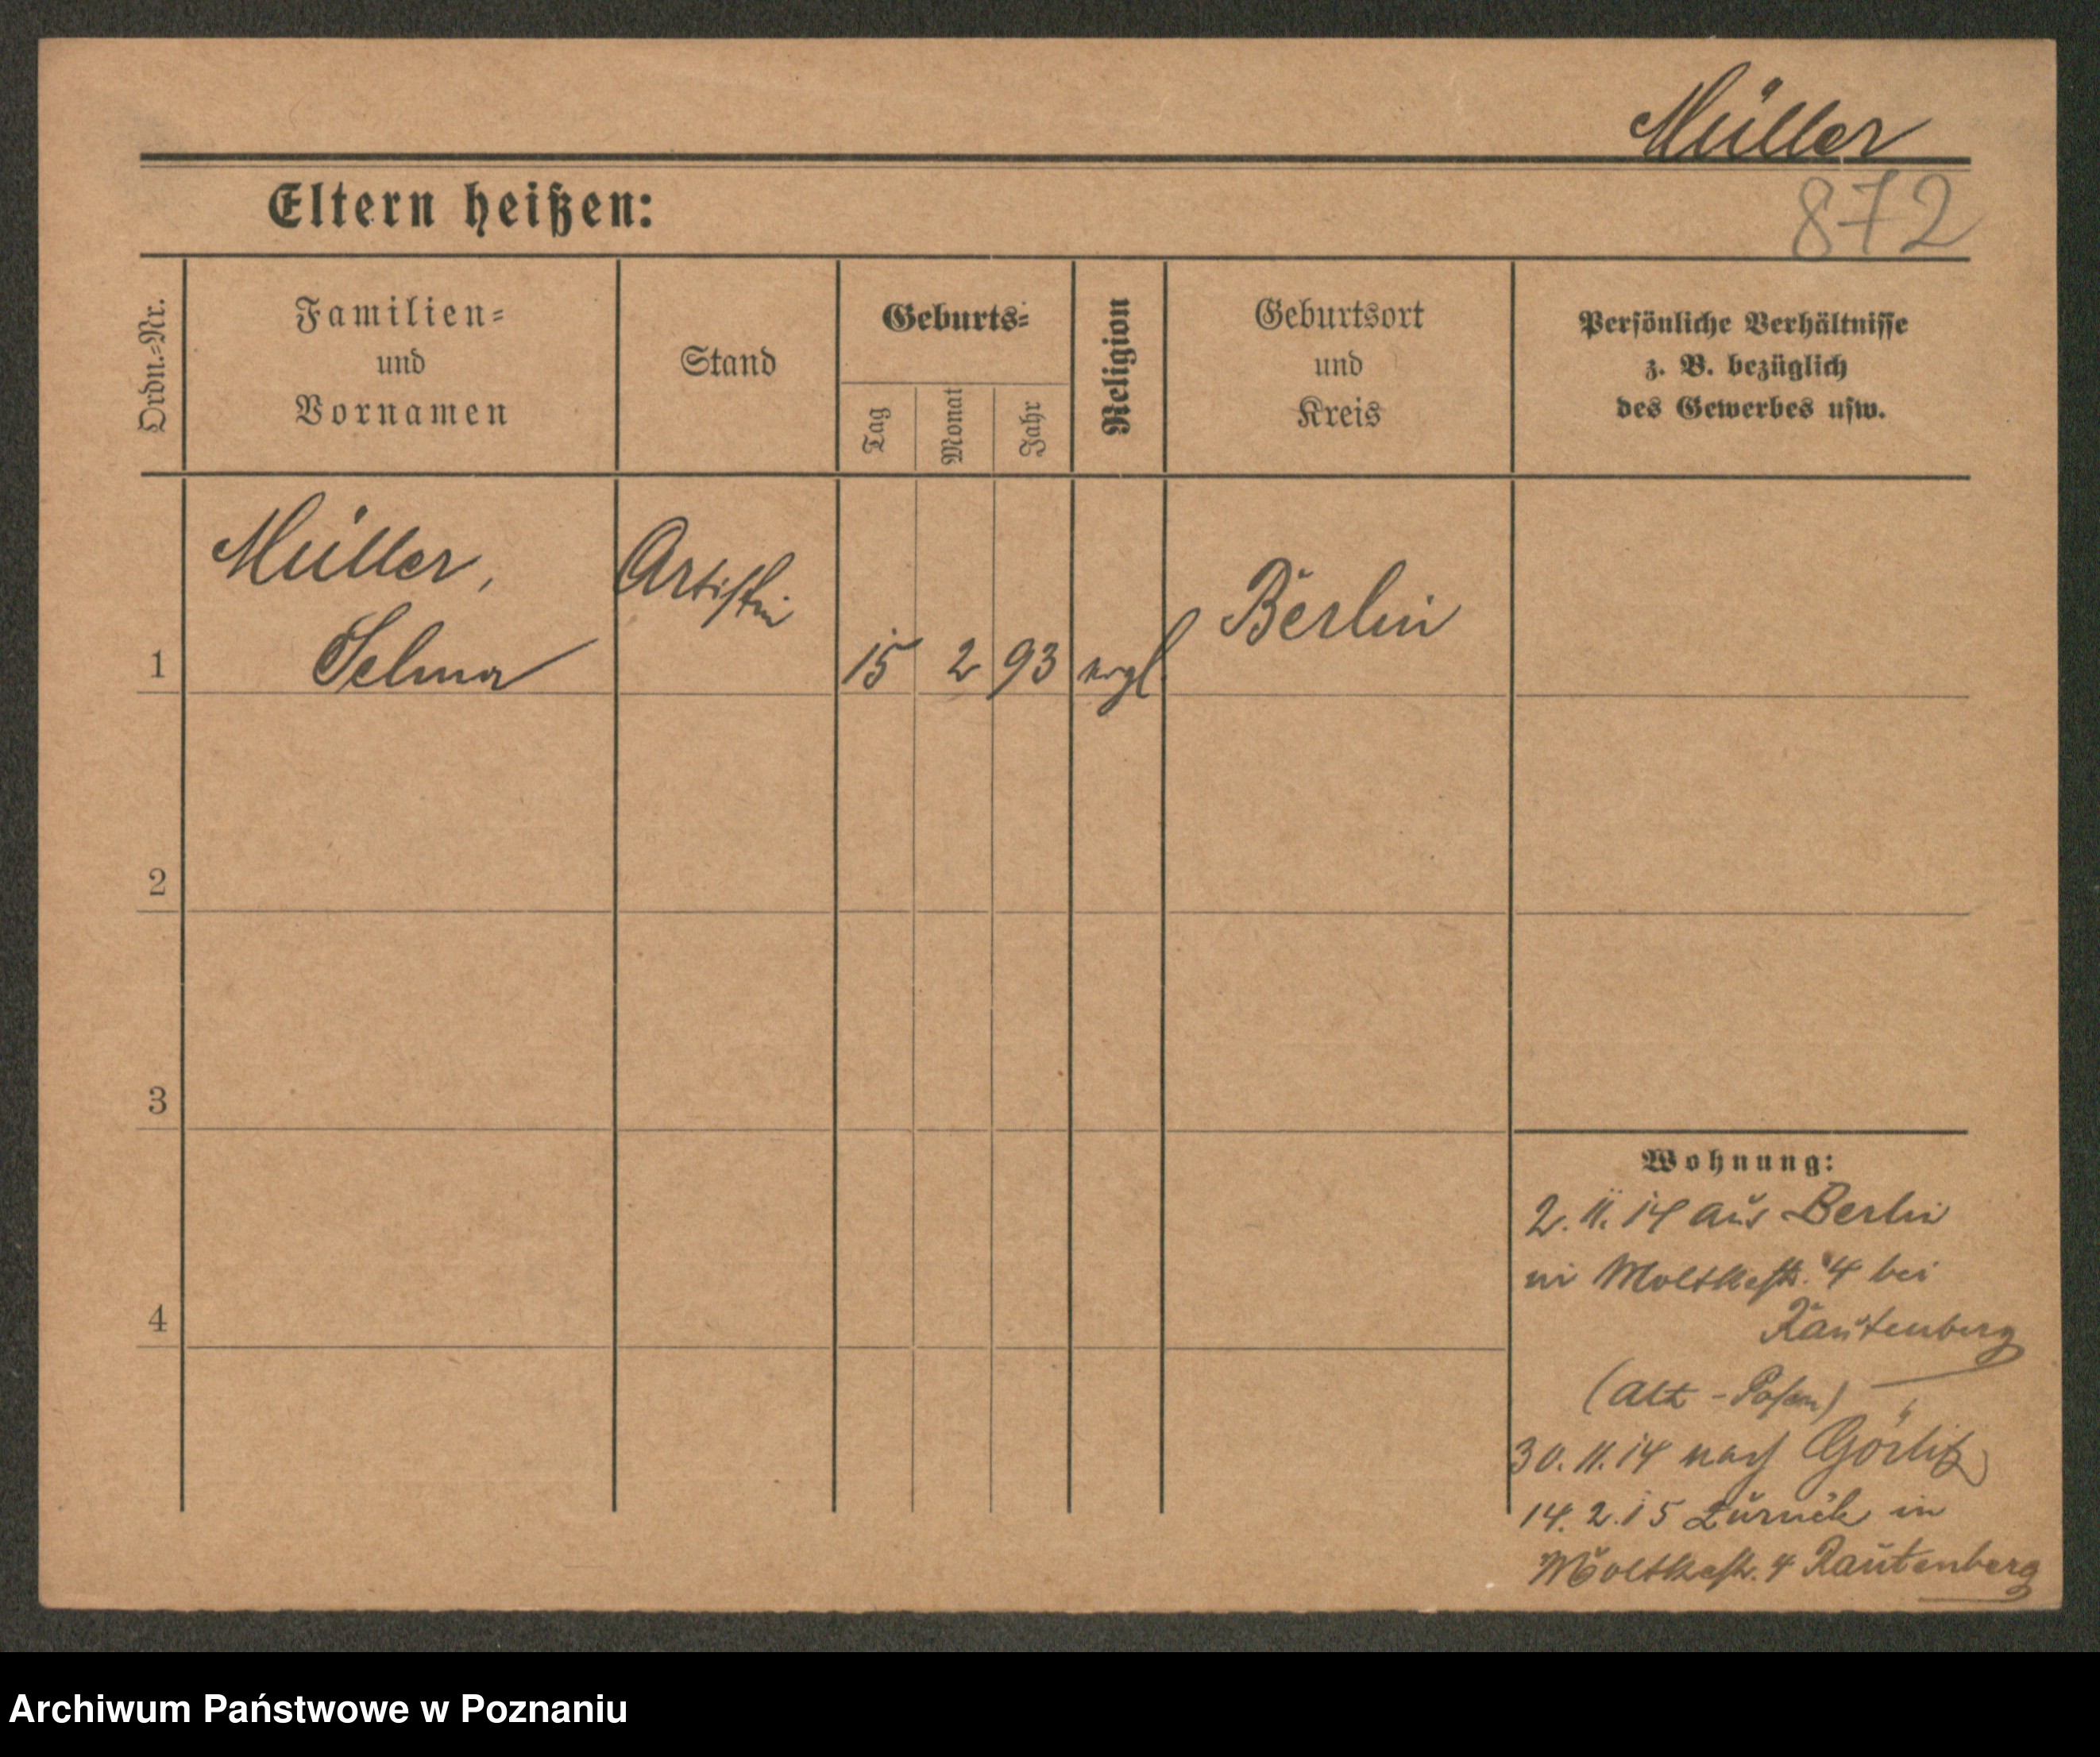 Müller
872
Eltern heißen:
Ordn.=Nr.
Familien=
und
Vornamen
Stand
Geburts=
Tag
Monat
Jahr
Religion
Geburtsort
und
Kreis
Persönliche Verhältnisse
z. B. bezüglich
des Gewerbes usw.
1
Müller,
Selma
Artistin
15 2 93
Berlin
2
3
4
Wohnung:
2. 11. 14 aus Berlin
in Moltkestr. 4 bei
Rautenberg
(Alt - Posen)
30. 11. 14 nach Görlitz
14. 2. 15 zurück in
Moltkestr. 4 Rautenberg
Archiwum Państwowe w Poznaniu